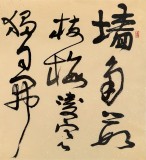 墙角数
枝梅凌寒
独自开